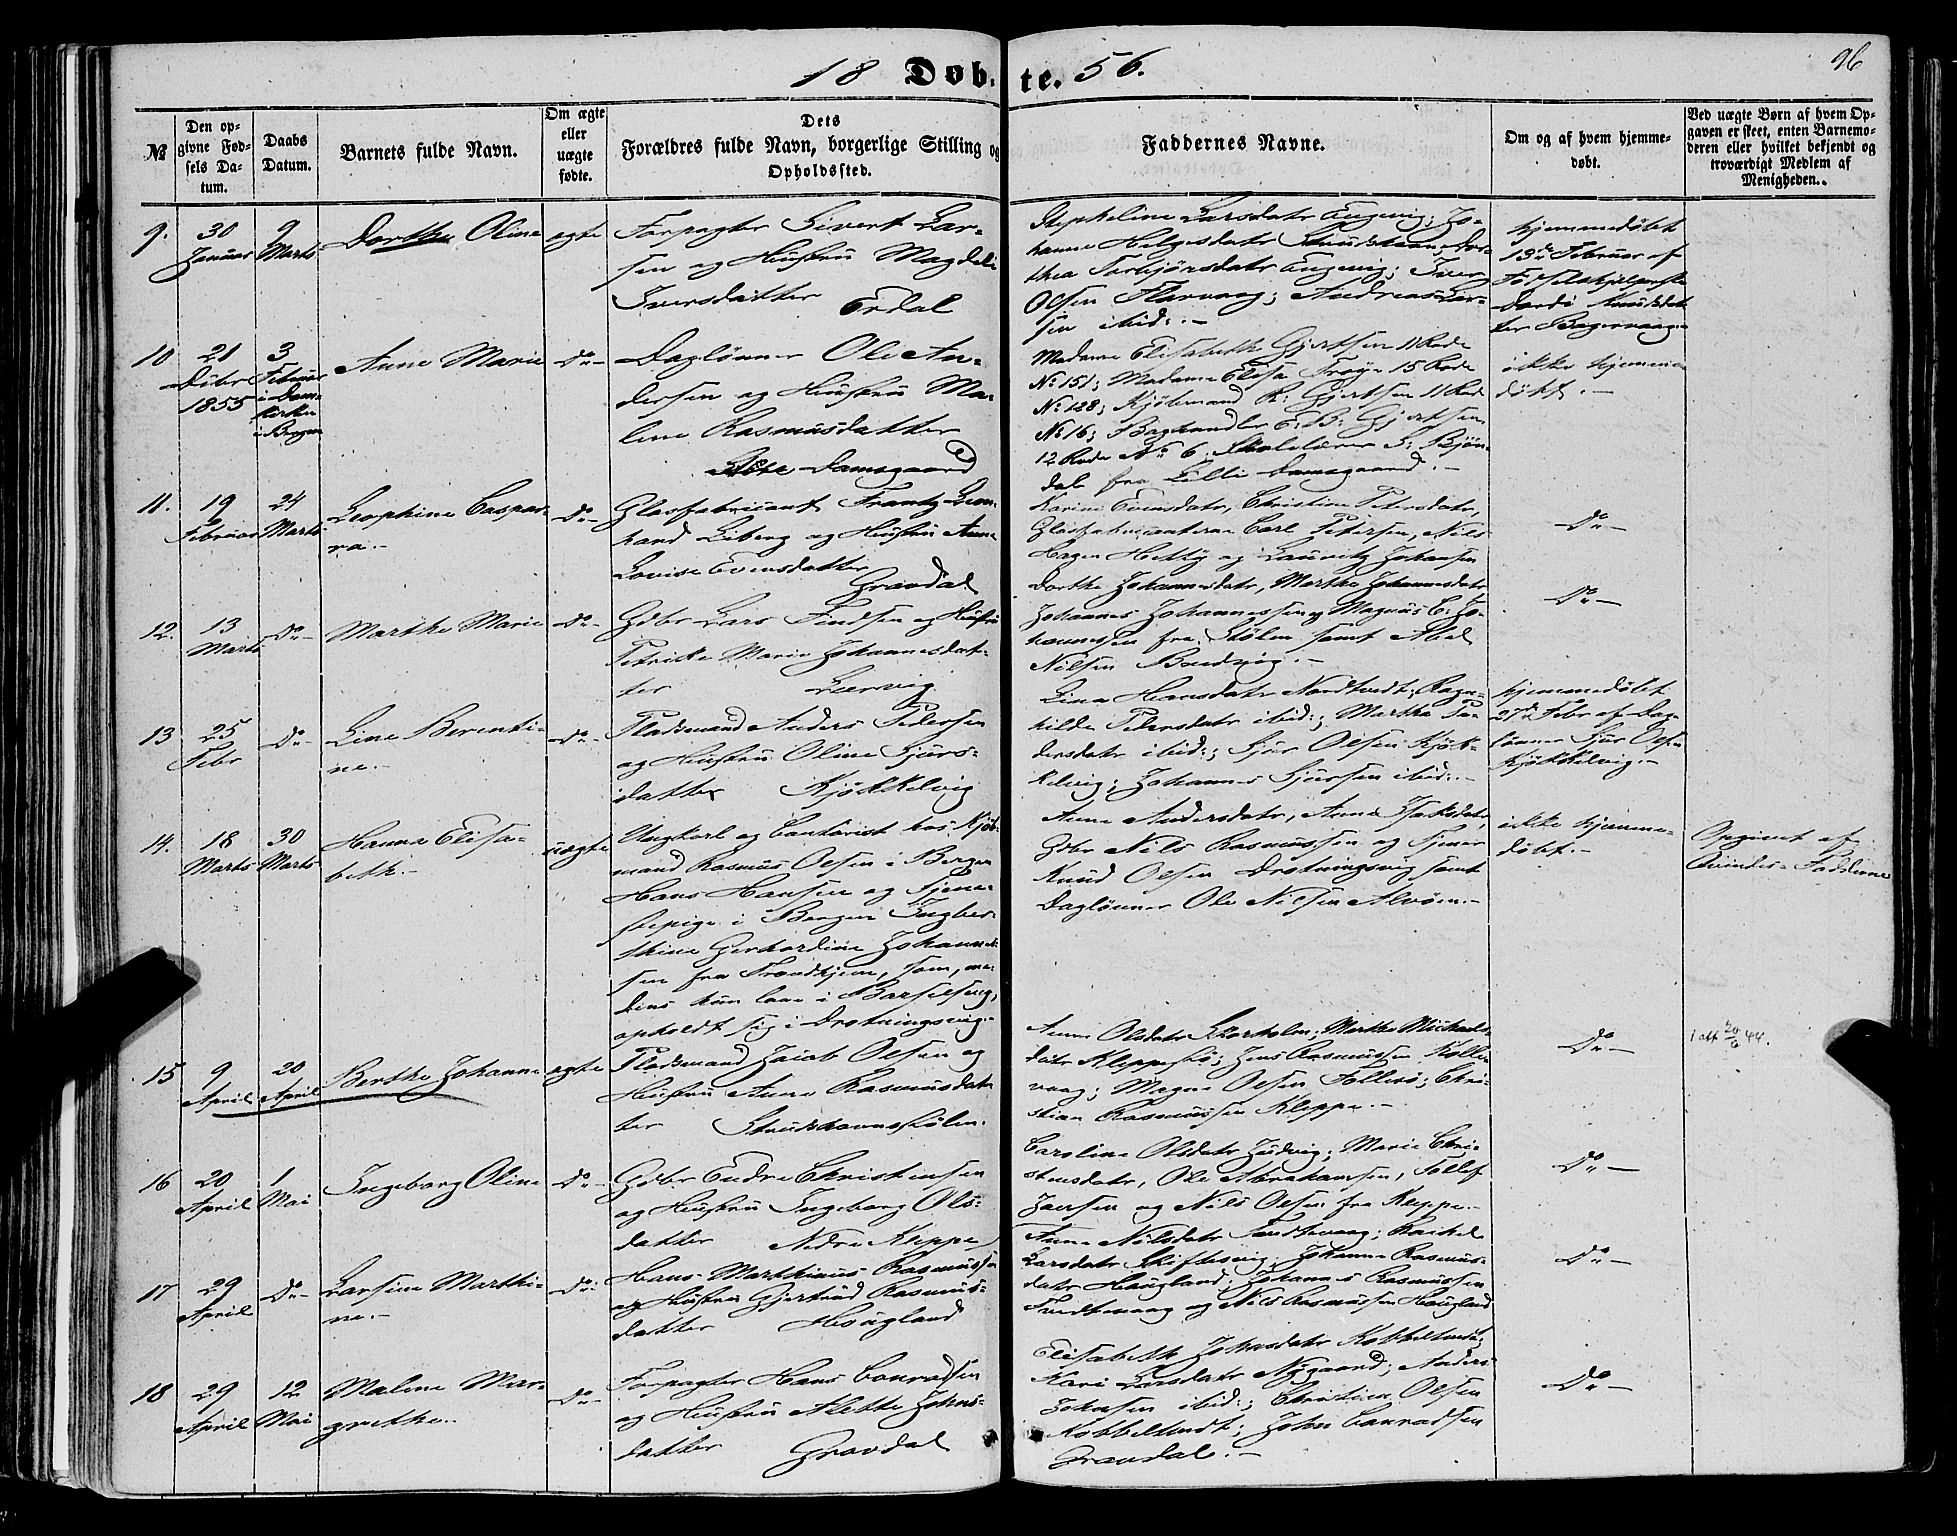 18 Døb-te. 56.
96
№
Den opgivne Fødsels Datum.
Daabs Datum.
Barnets fulde Navn.
Om ægte eller uægte fødte.
Dets Forældres fulde Navn, borgerlige Stilling og Opholdssted.
Faddernes Navne.
Om og af hvem hjemmedøbt.
Ved uægte Børn af hvem Opgaven er skeet, enten Barnemoderen eller hvilket bekjendt og troværdigt Medlem af Menigheden.
9.
30 Januar
9 Marts
Dorthe Oline
ægte
Forpagter Sivert Lar-
sen og Hustru Magdeli
Iversdatter
Erdal
Larsdatr Engevig; Jo-
hanne Helgesdatr Dor-
thea Torbjørsdatr Engevig; Iver
Olsen Flarvaag; Andreas Lar-
sen ibid:-
hjemmedøbt
13de Februar af
Fødselshjelperske
Knudsdat-
ter
10
21 Decbr 1855
3 Februar i Dom-
kirken
i Bergen
Anne Marie
Do-
Daglønner Ole An-
dersen og Hustru Ma-
lene Rasmusdatter
Damsgaard
Madame Elisabeth Gjertsen 11 Rode
No 151; Madame Elisa Frøye 15 Rode
No 128; Kjøbmand R: Gjertsen 11 Rode
No 16; Boghandler E: B: Gjertsen
12 Rode No 6. Skolelærer S: Bjørn-
dal fra Lille Damsgaard.-
ikke hjemme-
døbt.-
11.
19 Februar
24 Marts
Josephine Caspa-
ra.-
Do-
Glasfabricant Frantz Leon-
hard Liberg og Hustru Anne
Lovise Evensdatter
Gravdal
Karine Evensdatr, Christine Petersdatr,
Carl Petersen, Nils
Hagen Hetly og Lauritz Johansen
Do-
12.
13 Marts
Do-
Marthe Marie
Do-
Gdbr Lars Findsen og Hustru
Petricke Marie Johannesdat-
ter
Leervig
Dorthe Johannesdatr, Marthe Johannesdatr
Johannes Johannessen og Magnus C: Jo-
hannessen fra Stølen samt Abel
Nilsen Bredvig.-
Do-
13
25 Febr
Do-
Line Berenti-
ne.-
Do-
Pladsmand Anders Pedersen
og Hustru Oline Sjurs-
datter
Kjøkkelvig
Lina Hansdatr Nordtvedt; Ragn-
hilde Pedersdatr ibid:; Martha Pe-
dersdatr ibid:; Sjur Olsen Kjøk-
kelvig; Johannes Sjursen ibid:-
hjemmedøbt
27de Febr af Dag-
lønner Sjur Olsen
Kjøkkelvig.-
14.
18 Marts
30 Marts
Hanna Elisa-
beth.-
uægte
Ungkarl og Contorist hos Kjøb-
mand Rasmus Olsen i Bergen
Hans Hansen og Tjene-
stepige i Bergen Ingber-
thine Gerhardine Johanne-
sen fra Trondhjem, som, me-
dens hun laae i Barselseng,
opholdt sig i Drotningsvig.-
Anne Andersdatr, Anne Isaksdatr,
Gdbr Nils Rasmussen og Tjener
Knud Olsen Drotningsvig samt
Daglønner Ole Nilsen Alvøen.-
ikke hjemme-
døbt.-
Opgivet af
Qvinde-Fadderne
15
9 April
20 April
Berthe Johanne
ægte
Pladsmand Jacob Olsen og
Hustru Anne Rasmusdat-
ter
Strudshavnstølen.
Anne Olsdatr Storholm; Marthe Michels-
datr Kleppestø; Jens Rasmussen Kolle-
vaag; Mogens Olsen Follesø; Chri-
stian Rasmussen Kleppe.-
Do-
1 att 20/6 44.
16
20 April
1 Mai
Ingeborg Oline
Do-
Gdbr Endre Christensen
og Hustru Ingeborg Ols-
datter
Nedre Kleppe
Caroline Olsdatr Marie Chri-
stensdatr, Ole Abrahamsen, Tollef
Jansen og Nils Olsen fra Kleppe.-
Do-
17
29 April
Do-
Larsine Marthi-
ne.-
Do-
Hans Marthinus Rasmussen
og Hustru Gjertrud Rasmus-
datter
Hougland
Anne Nilsdatr Tvedtevaag; Rachel
Larsdatr Skiftesvig; Johanne Rasmus-
datr Hougland; Johannes Rasmussen
Tvedtevaag og Nils Rasmussen Hougland
Do-
18
29 April
12 Mai
Malene Mar-
grethe.
Do-
Forpagter Hans Conradsen
og Hustru Alethe Johns-
datter
Gravdal
Elisabeth Johnsdatr Kobbeltvedt;
Kari Larsdatr Nygaard; Anders
Johnsen ibid:; Christian Olsen
Kobbeltvedt; John Conradsen
Gravdal.-
Do-